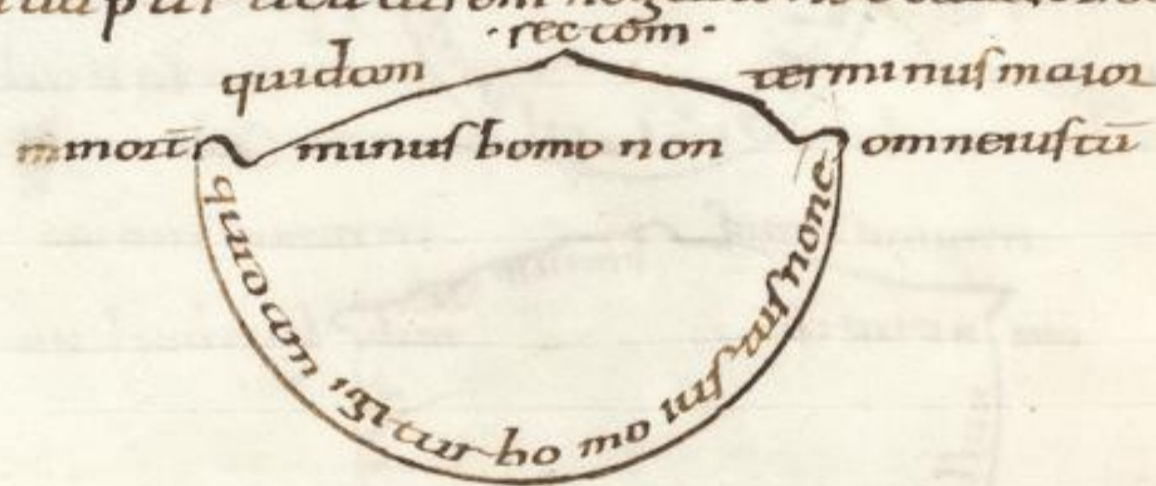 · rectam ·
quidam terminus maior
minus homo non omne iustū
quidam igitur homo iustus non e